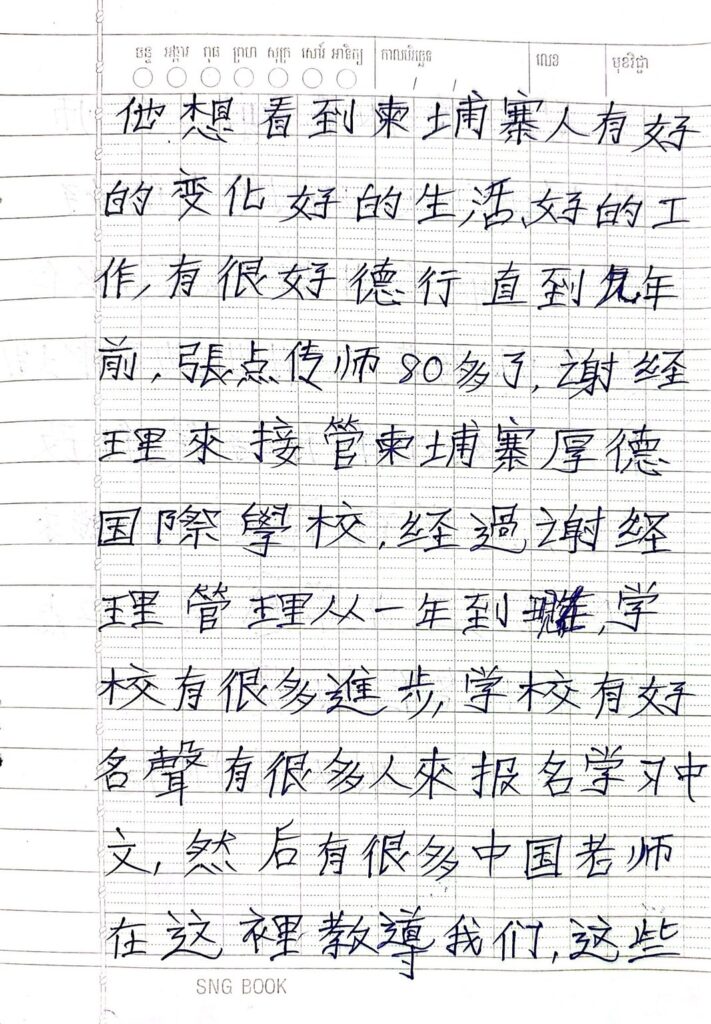 ចន្ទ អង្គារ ពុធ ព្រហ សុក្រ សៅរ៍ អាទិត្យ កាលបរិច្ឆេទ / / លេខ មុខវិជ្ជា
他想看到柬埔寨人有好
的变化好的生活,好的工
作,有很好德行直到几年
前,張点传师80多了,謝経
理來接管柬埔寨厚德
国際學校,経過謝経
理管理从一年到現在,学
校有很多進步,学校有好
名聲有很多人來报名学习中
文,然后有很多中国老师
在这裡教導我们,这些
SNG BOOK